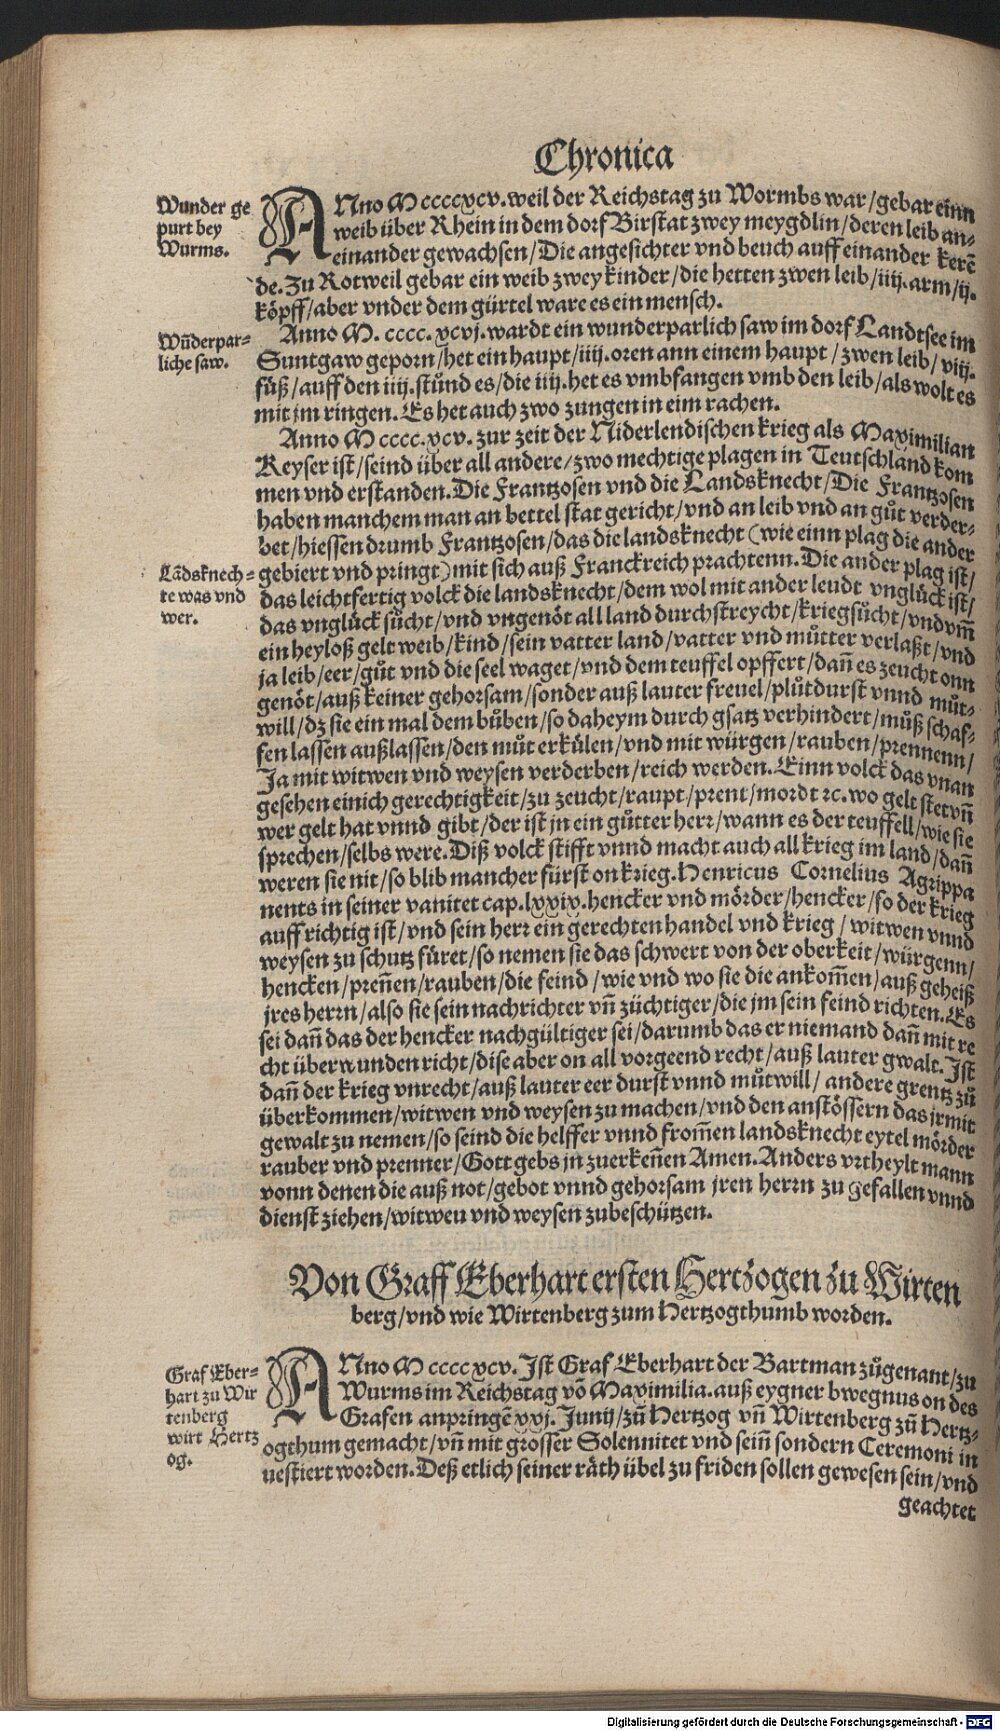 Chronica
Wunder ge
purt bey
Wurms.
ANno M ccccxcv. weil der Reichstag zu Wormbs war/gebar einn
weib über Rhein in dem dorf Birstat zwey meygdlin/deren leib an-
einander gewachsen/Die angesichter vnd beuch auff einander kerē
de. Zu Rotweil gebar ein weib zwey kinder/die hetten zwen leib/iiij. arm/ij.
köpff/aber vnder dem gürtel ware es ein mensch.
Wūderpar-
liche saw.
Anno M. cccc. xcvj. wardt ein wunderparlich saw im dorf Landtsee im
Suntgaw geporn/het ein haupt/iiij. oren ann einem haupt/zwen leib/viij.
füß/auff den iiij. stůnd es/die iiij. het es vmbfangen vmb den leib/als wolt es
mit jm ringen. Es het auch zwo zungen in eim rachen.
Anno M cccc. xcv. zur zeit der Niderlendischen krieg als Maximilian
Keyser ist/seind über all andere/zwo mechtige plagen in Teutschland kom
men vnd erstanden. Die Frantzosen vnd die Landsknecht/Die Frantzosen
haben manchem man an bettel stat gericht/vnd an leib vnd an gůt verder-
bet/hiessen drumb Frantzosen/das die landsknecht (wie einn plag die ander
Lādsknech-
te was vnd
wer.
gebiert vnd pringt) mit sich auß Franckreich prachtenn. Die ander plag ist/
das leichtfertig volck die landsknecht/dem wol mit ander leudt vnglück ist/
das vnglück sůcht/vnd vngenöt all land durchstreycht/kriegsůcht/vnd vm̄
ein heyloß gelt weib/kind/sein vatter land/vatter vnd můtter verlaßt/vnd
ja leib/eer/gůt vnd die seel waget/vnd dem teuffel opffert/dañ es zeucht onn
genöt/auß keiner gehorsam/sonder auß lauter freuel/plůtdurst vnnd můt-
will/dz sie ein mal dem bůben/so daheym durch gsatz verhindert/můß schaf-
fen lassen außlassen/den můt erkůlen/vnd mit würgen/rauben/prennenn/
Ja mit witwen vnd weysen verderben/reich werden. Einn volck das vnan
gesehen einich gerechtigkeit/zu zeucht/raupt/prent/mordt ꝛc. wo gelt stet vñ
wer gelt hat vnnd gibt/der ist jn ein gůtter herr/wann es der teuffell/wie sie
sprechen/selbs were. Diß volck stifft vnnd macht auch all krieg im land/dañ
weren sie nit/so blib mancher fürst on krieg. Henricus Cornelius Agrippa
nents in seiner vanitet cap. lxxix. hencker vnd mörder/hencker/so der krieg
auff richtig ist/vnd sein herr ein gerechten handel vnd krieg/witwen vnnd
weysen zu schutz füret/so nemen sie das schwert von der oberkeit/würgenn/
hencken/preñen/rauben/die feind/wie vnd wo sie die ankom̄en/auß geheiß
jres herrn/also sie sein nachrichter vñ züchtiger/die jm sein feind richten. Es
sei dañ das der hencker nachgültiger sei/darumb das er niemand dañ mit re
cht überwunden richt/dise aber on all vorgeend recht/auß lauter gwalt. Ist
dañ der krieg vnrecht/auß lauter eer durst vnnd můtwill/andere grentz zů
überkommen/witwen vnd weysen zu machen/vnd den anstössern das jr mit
gewalt zu nemen/so seind die helffer vnnd from̄en landsknecht eytel mörder
rauber vnd prenner/Gott gebs jn zuerkeñen Amen. Anders vrtheylt mann
vonn denen die auß not/gebot vnnd gehorsam jren herrn zu gefallen vnnd
dienst ziehen/witweu vnd weysen zubeschützen.
Von Graff Eberhart ersten Hertzogen zu Wirten
berg/vnd wie Wirtenberg zum Hertzogthumb worden.
Graf Eber-
hart zu Wir
tenberg
wirt Hertz
og.
ANno M cccc xcv. Ist Graf Eberhart der Bartman zůgenant/zu
Wurms im Reichstag vō Maximilia. auß eygner bwegnus on des
Grafen anpringē xxj. Junij/zů Hertzog vñ Wirtenberg zů Hertz-
ogthum gemacht/vñ mit grosser Solennitet vnd seiñ sondern Ceremoni in
uestiert worden. Deß etlich seiner räth übel zu friden sollen gewesen sein/vnd
geachtet
Digitalisierung gefördert durch die Deutsche Forschungsgemeinschaft - DFG